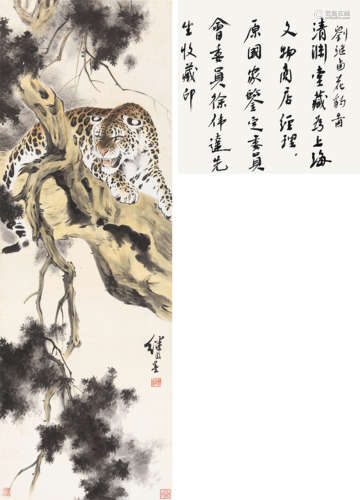 劉继卣花豹图
清澗堂藏为上海
文物商店经理.
原国家鑒定委員
會委員徐伟達先
生收藏印
继卣